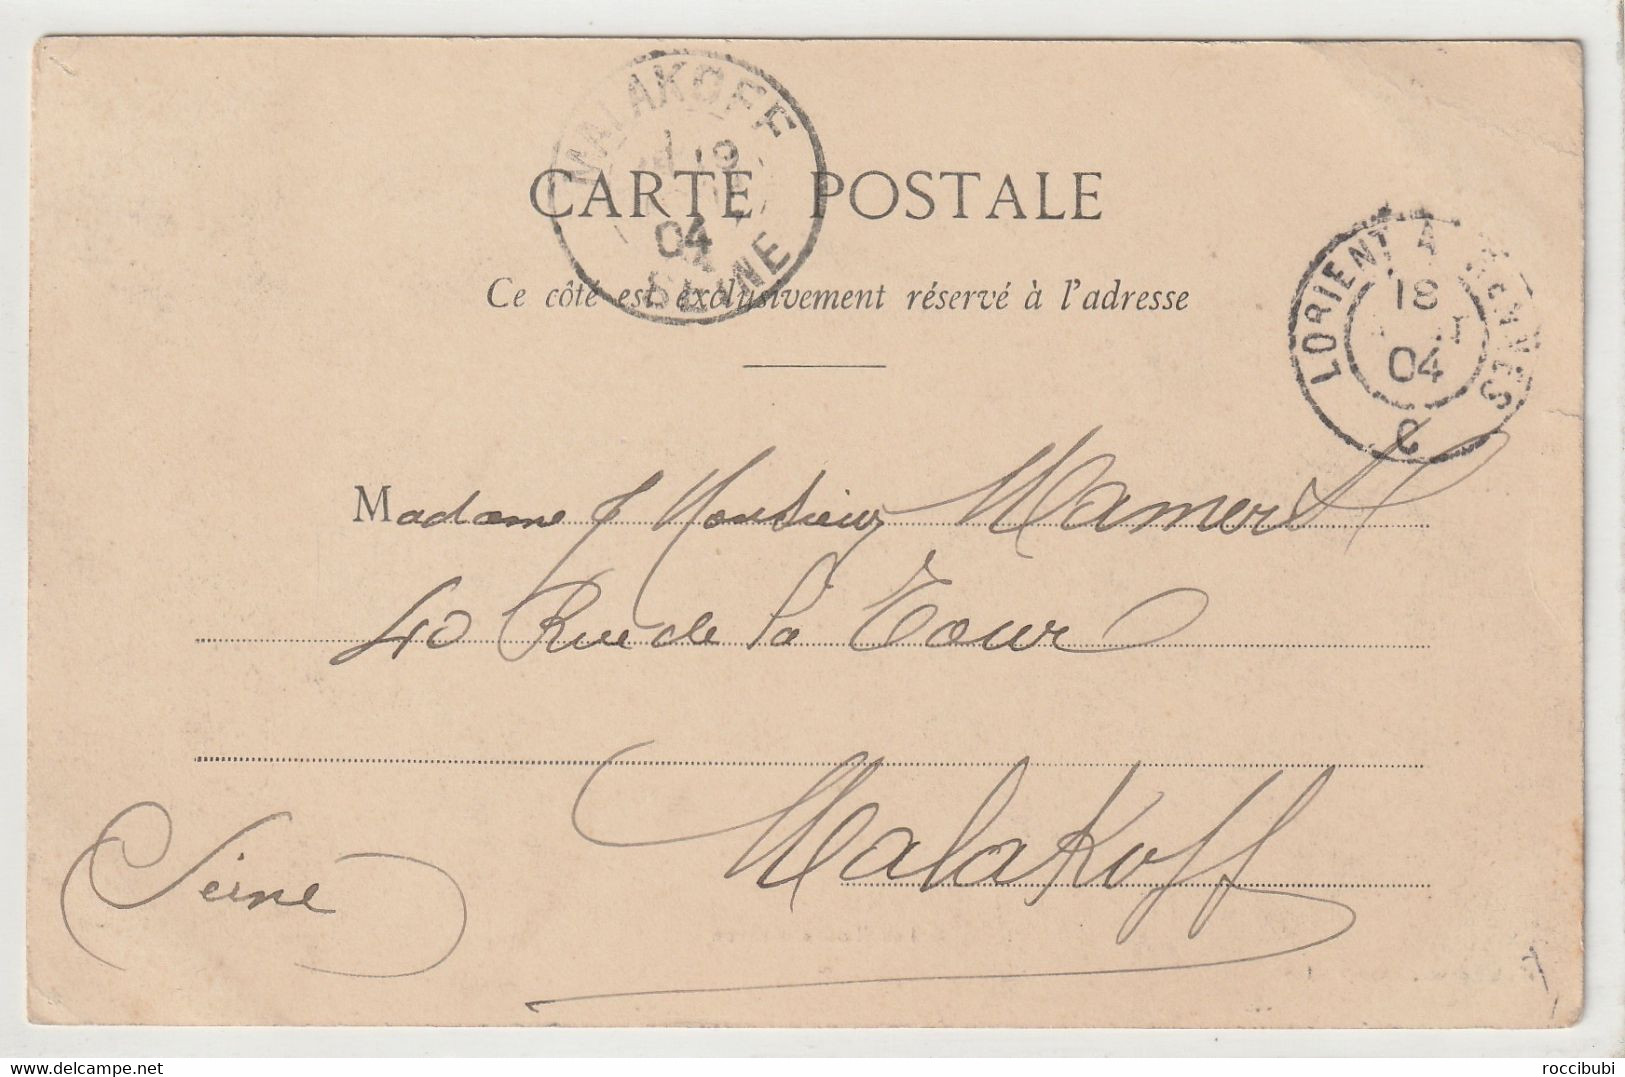 MALAKOFF
19
04
SEINE
CARTE POSTALE
Ce côté est exclusivement réservé à l'adresse
LORIENT A
18
04
C
Madame & Monsieur Mamert
40 Rue de la Tour
Malakoff
Seine
delcampe.net
roccibubi